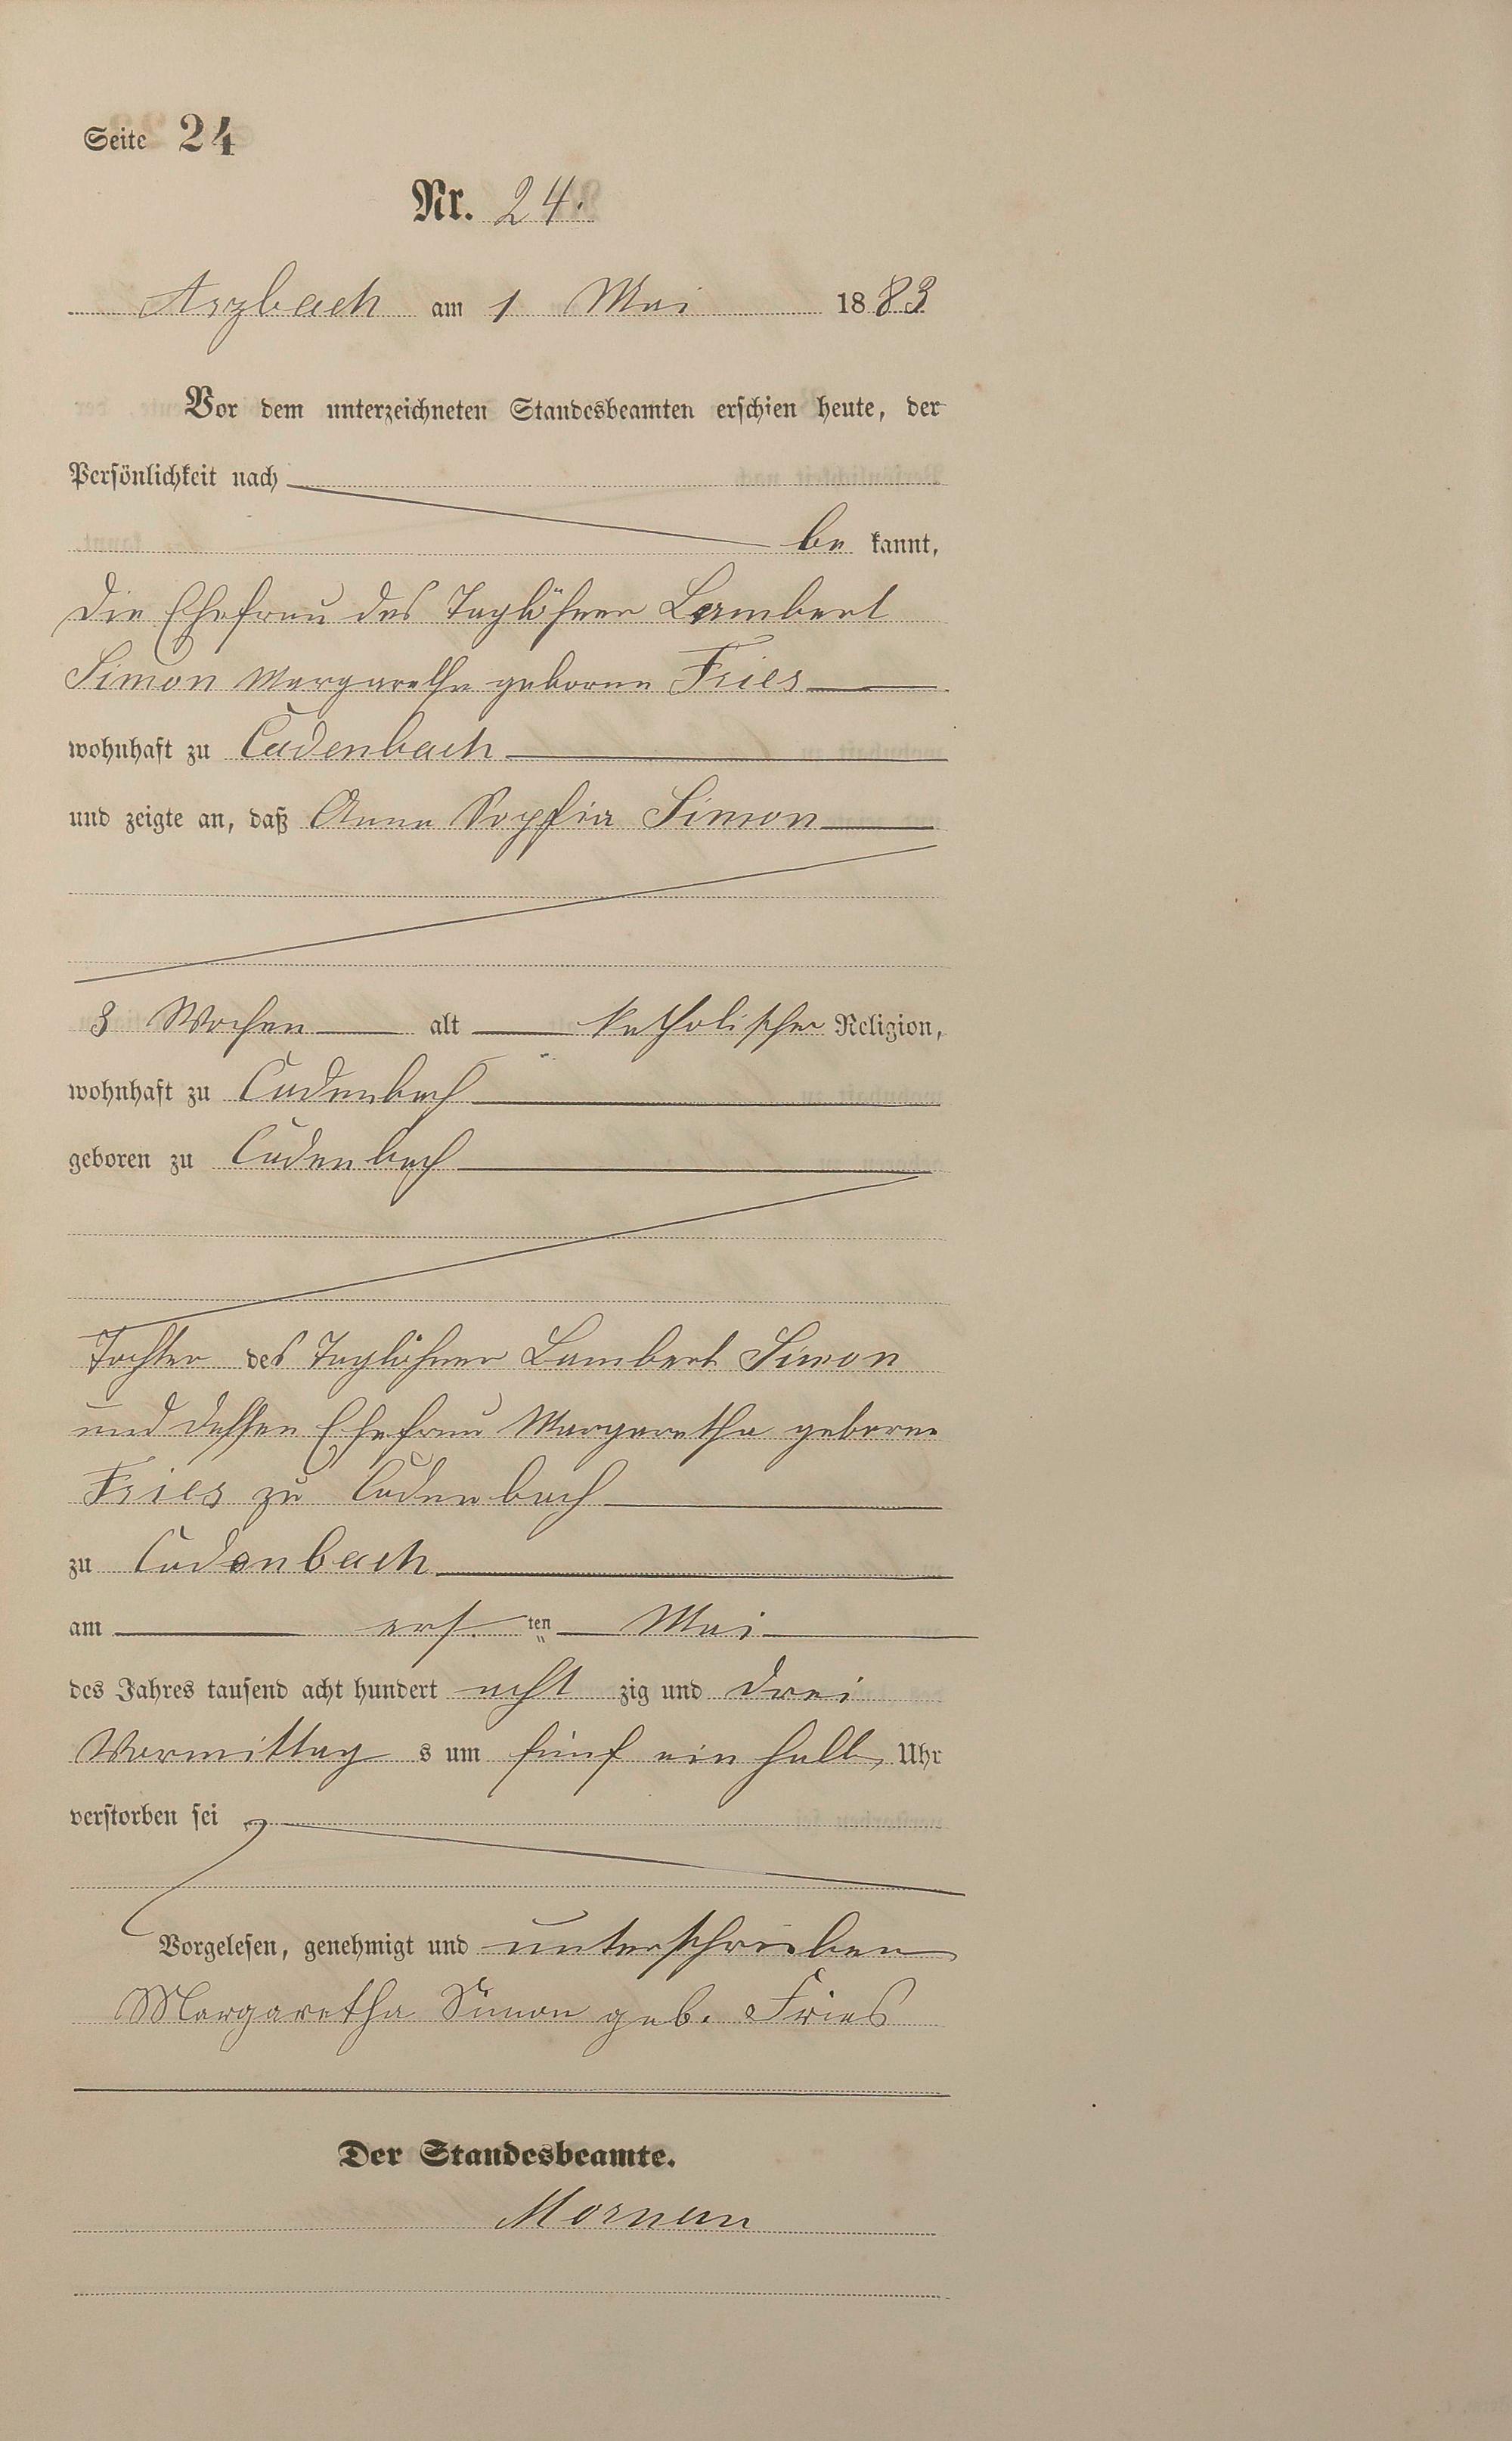 Seite 24
Nr. 24.
Arzbach am 1 Mai 1883
Vor dem unterzeichneten Standesbeamten erschien heute, der
Persönlichkeit nach
be kannt,
die Ehefrau des Taglöhner Lambert
Simon Margaretha geborne Fries
wohnhaft zu Cadenbach
und zeigte an, daß Anna Sophia Simon
3 Wochen alt katholischer Religion,
wohnhaft zu Cadenbach
geboren zu Cadenbach
Tochter des Taglöhner Lambert Simon
und dessen Ehefrau Margaretha geborne
Fries zu Cadenbach
zu Cadenbach
am ers ten Mai
des Jahres tausend acht hundert acht zig und drei
Vormittag s um fünf ein halb Uhr
verstorben sei
Vorgelesen, genehmigt und unterschrieben
Margaretha Simon geb. Fries
Der Standesbeamte.